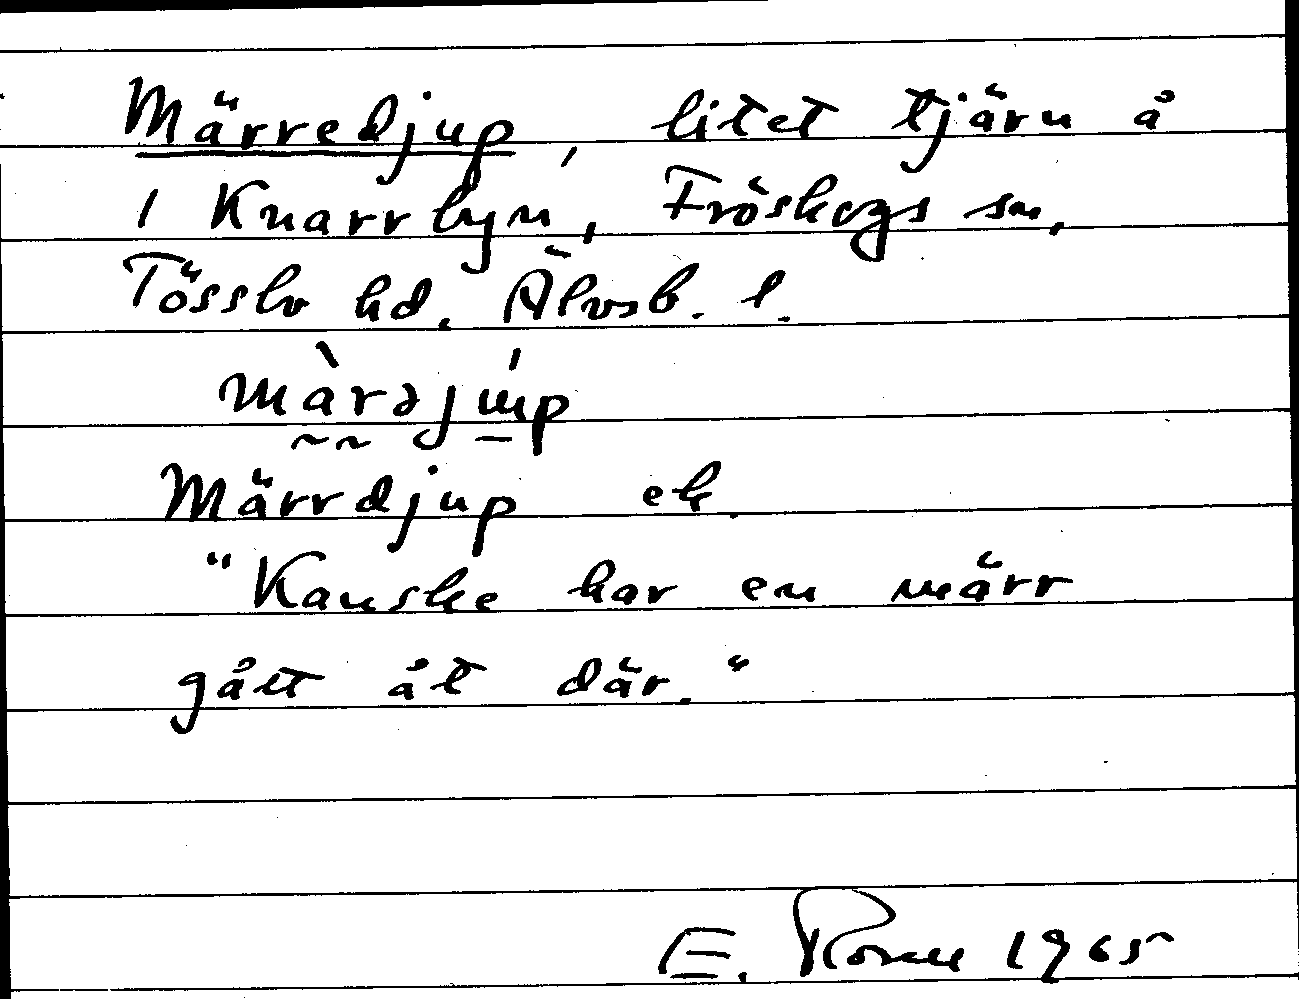 Märredjup, litet tjärn å
1 Knarrbyn, Fröskogs sn,
Tössbo hd. Älvsb. l.
màrəjúp
Märrdjup ek.
"Kanske har en märr
gått åt där."
E. 1965